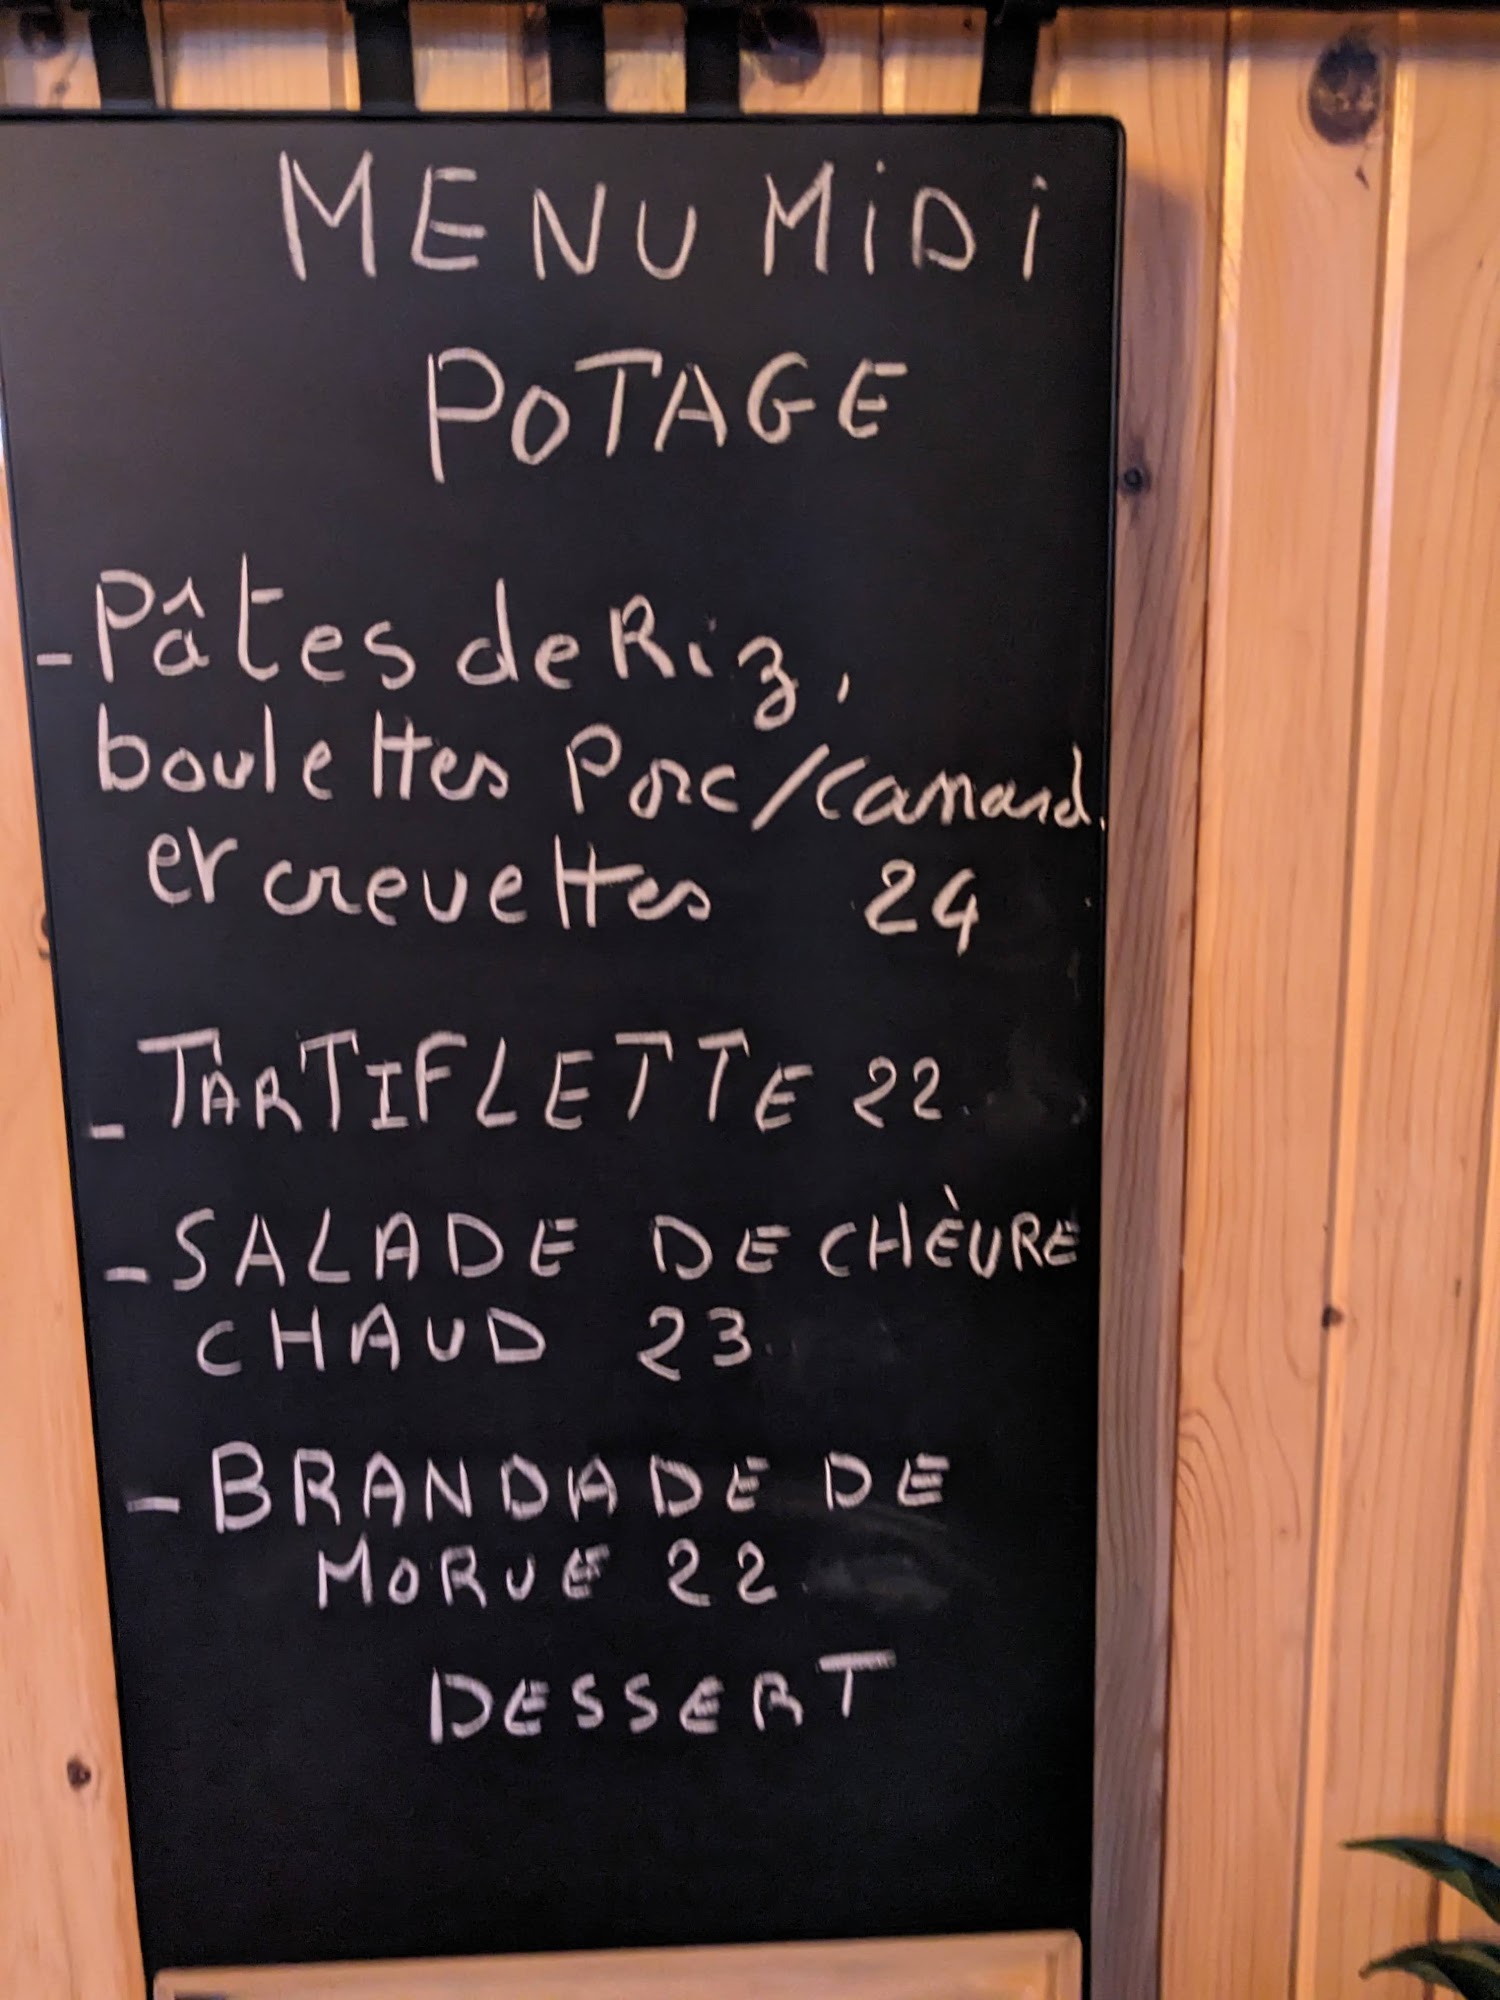 MENU MiDi
POTAGE
- Pâtes de Riz,
boulettes Porc/Canard
et crevettes 24
- TARTIFLETTE 22
- SALADE DE CHÈVRE
CHAUD 23
- BRANDADE DE
MORUE 22
DESSERT